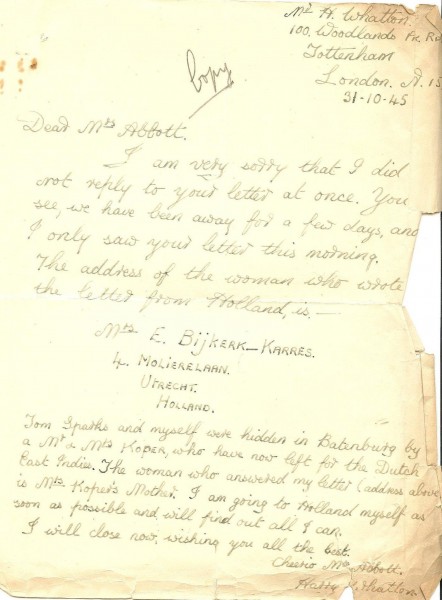 Mr H. Whatton.
100, Woodlands Pk. Rd
Tottenham
London. N. 15
31-10-45
Copy
Dear Mrs Abbott.
I am very sorry that I did
not reply to your letter at once. You
see, we have been away for a few days, and
I only saw your letter this morning.
The address of the woman who wrote
the letter from Holland, is. —
Mrs E. Bijkerk-Karres.
4. Molierelaan.
Utrecht.
Holland.
Tom Sparks and myself were hidden in Batenburg by
a Mr & Mrs Koper, who have now left for the Dutch
East Indies. The woman who answered my letter (address above)
is Mrs Koper's Mother. I am going to Holland myself as
soon as possible and will find out all I can.
I will close now, wishing you all the best.
Cheerio Mrs Abbott.
Harry Whatton.